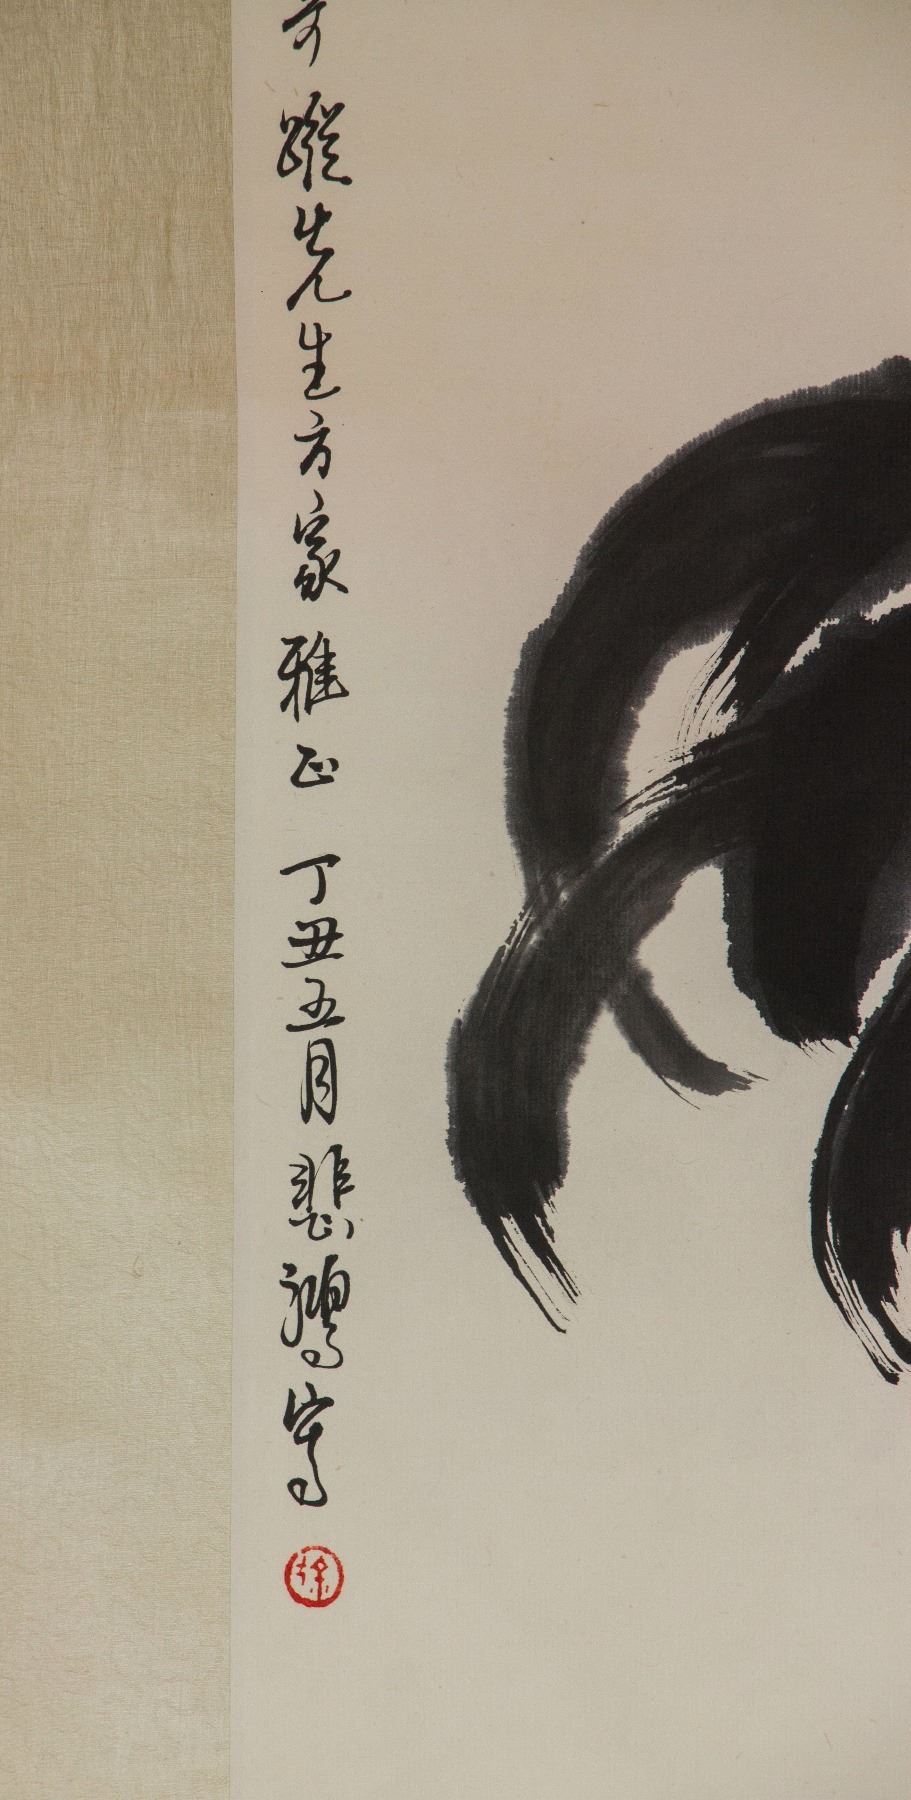 蹤先生方家雅正 丁丑五月悲鴻寫
徐